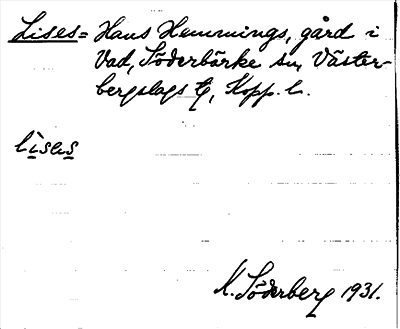 Lises = Hans Hemmings, gård i
Vad, Söderbärke sn, Väster-
bergslags tg, Kopp. l.
lises
K. Söderberg 1931.